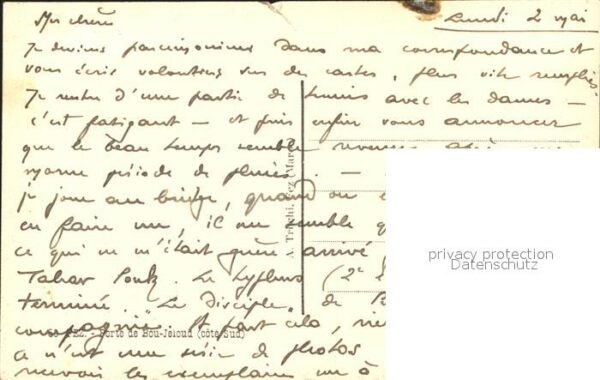 Lundi 2 mai
Ma chérie
Je deviens parcimonieuse dans ma correspondance et
vous écris volontiers sur des cartes, plus vite remplies.
Je rentre d'une partie de tennis avec les dames —
c'est fatigant — et puis enfin vous annoncer
que le beau temps semble revenu après
morne période de pluies. —
je joue au bridge, quand on
en faire un, il me semble q
ce qui ne m'était guère arrivé
Tahar Souk. Le (2e
terminé. "Le Disciple" de
compagnie. A part cela,
ce n'est une série de photos
recevoir les exemplaires un à
A. Tritchi, Fez (Maroc)
FEZ. - Porte de Bou-Jeloud (côté Sud)
privacy protection
Datenschutz